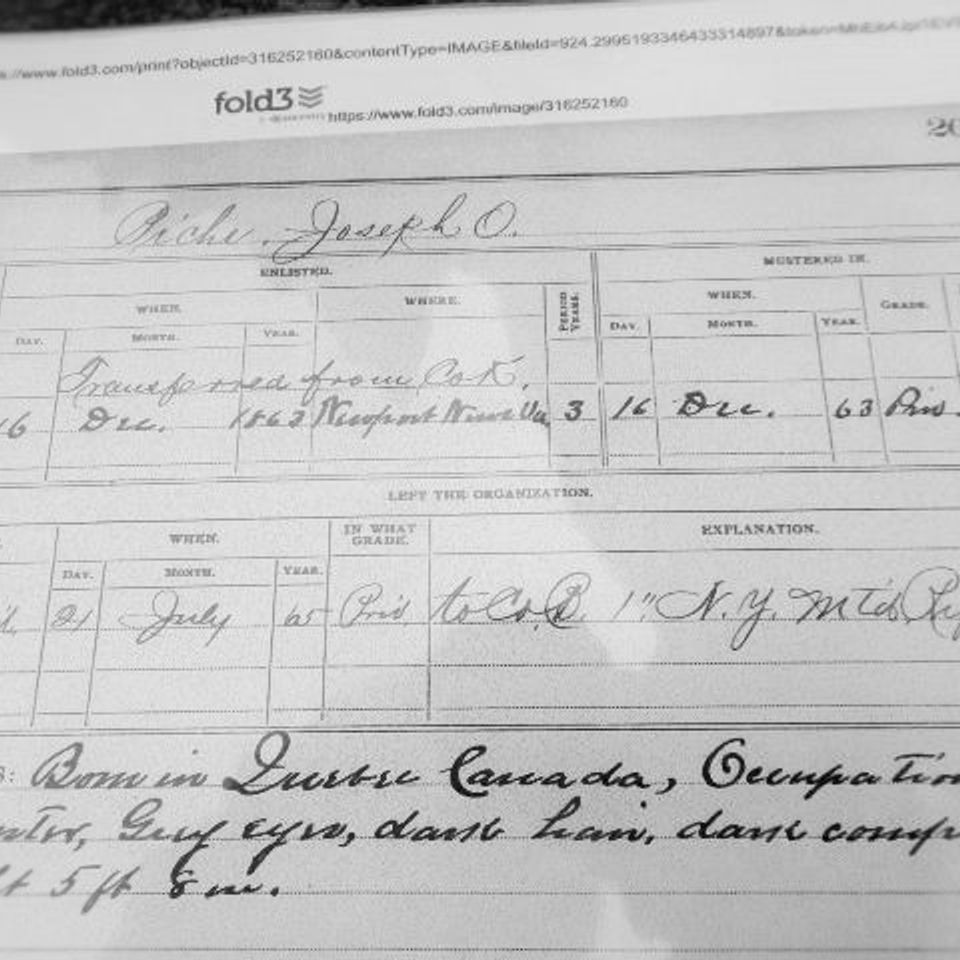 s://www.fold3.com/print?objectId=316252160&contentType=IMAGE&fileId=924.2995193346433314897&token=
fold3
https://www.fold3.com/image/316252160
20
Piche, Joseph O.
ENLISTED. MUSTERED IN.
WHEN. WHERE. PERIOD YEARS. WHEN. GRADE.
DAY. MONTH. YEAR. DAY. MONTH. YEAR.
Transferred from Co K.
16 Dec. 1863 Newport News Va 3 16 Dec. 63 Priv.
LEFT THE ORGANIZATION.
WHEN. IN WHAT GRADE. EXPLANATION.
DAY. MONTH. YEAR.
21 July 65 Priv. to Co. B. 1" N.Y. Mtd
: Born in Quebec Canada, Occupation
nter, Grey eyes, dark hair, dark comp
t 5 ft 8 in.